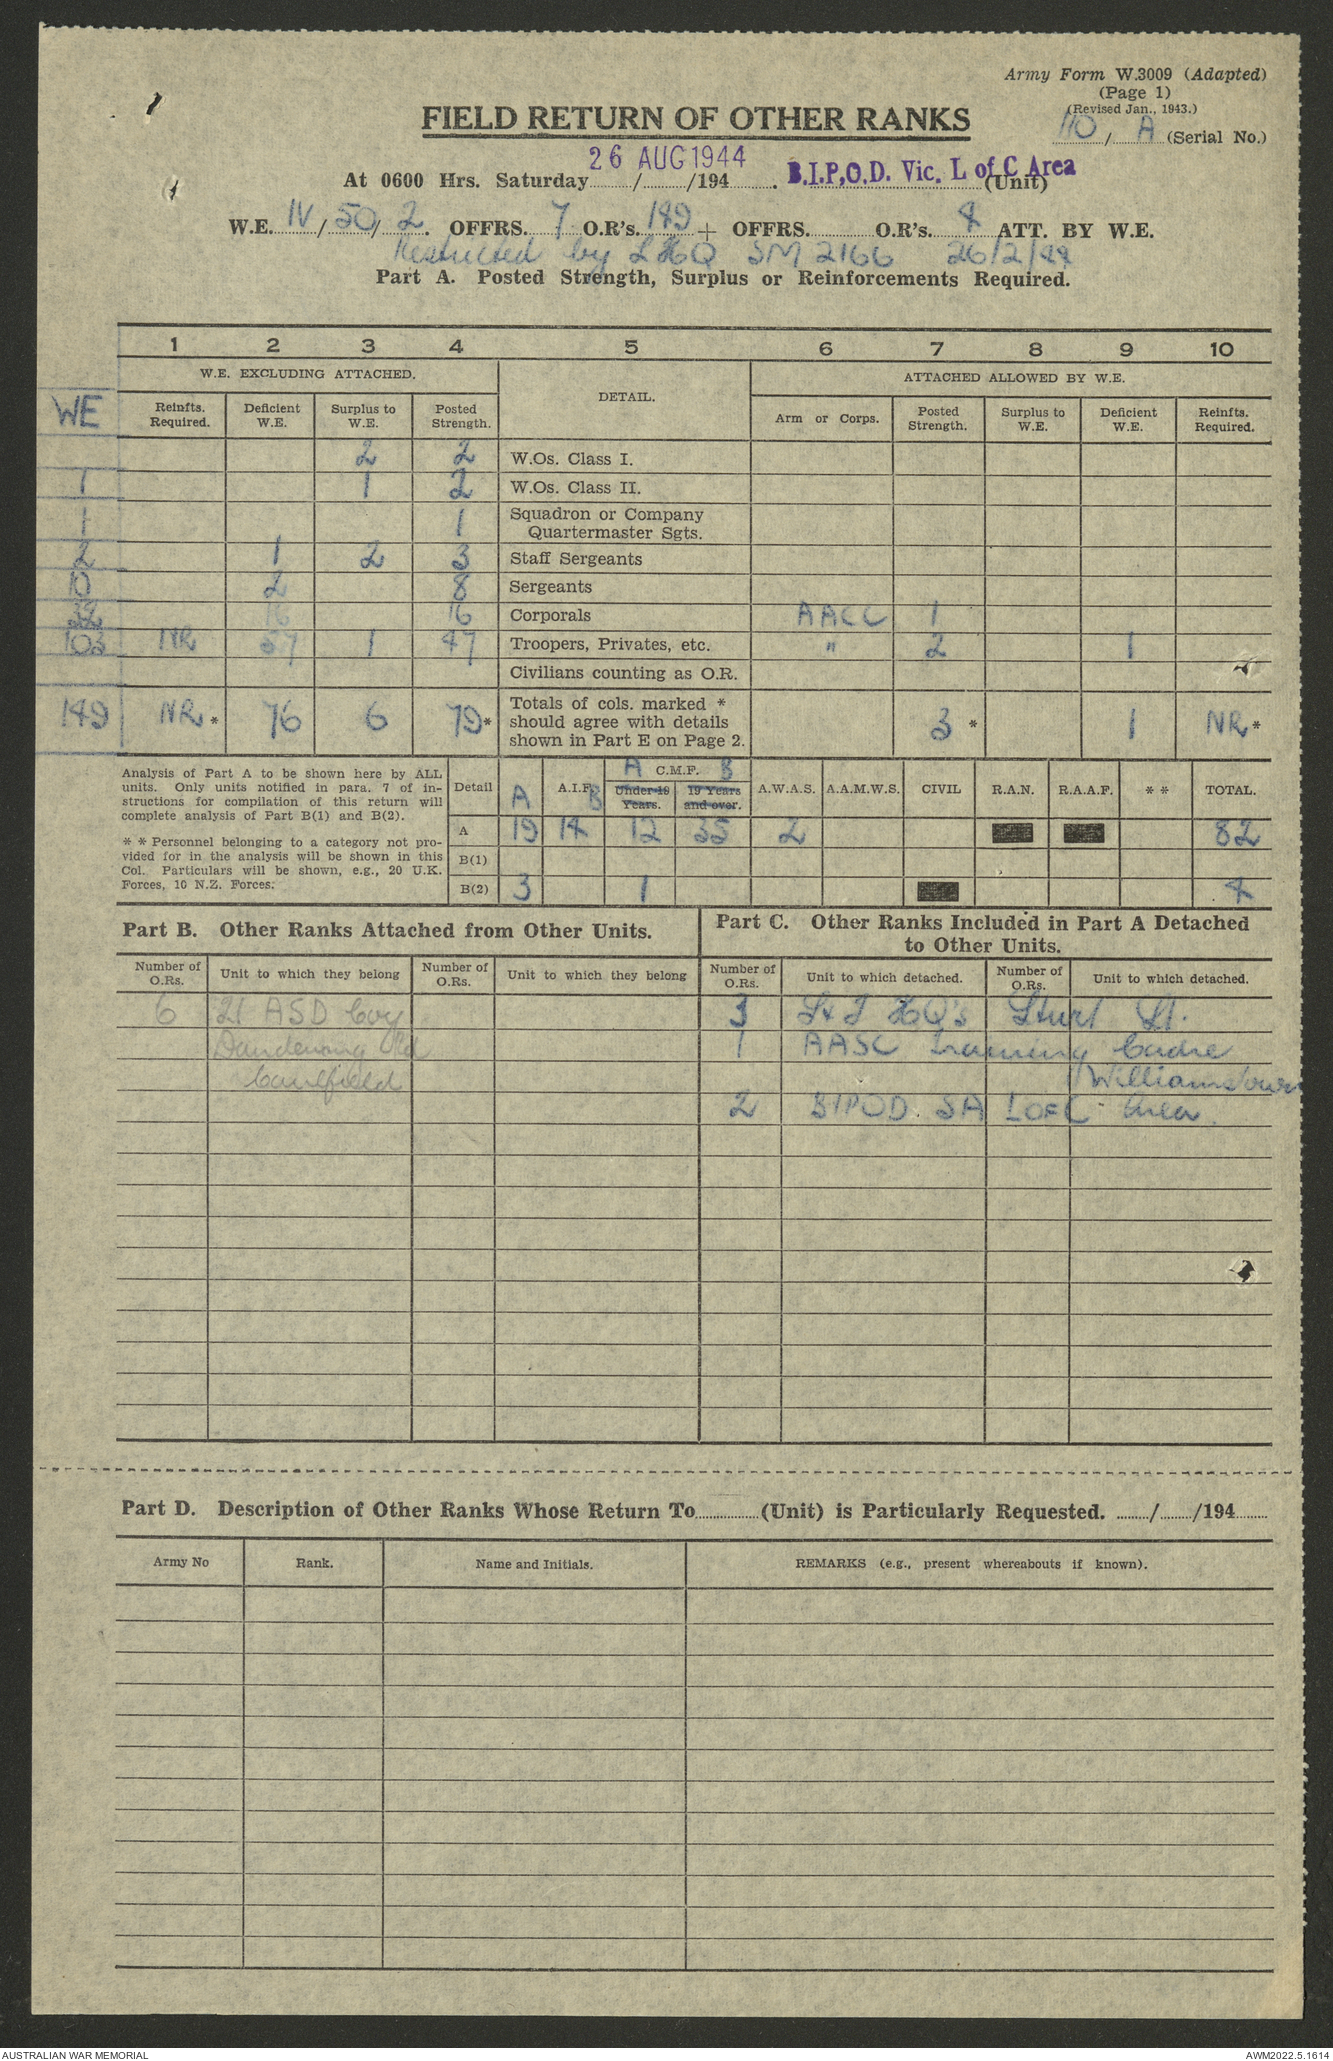 Army Form W.3009 (Adapted)
(Page 1)
(Revised Jan., 1943.)
FIELD RETURN OF OTHER RANKS
110 / A (Serial No.)
26 AUG 1944 B.I.P,O.D. Vic. L of C Area
At 0600 Hrs. Saturday......../......../194........ . (Unit)
W.E. IV / 50 / 2. OFFRS. 7 O.R's. 149 + OFFRS. ........ O.R's. 4 ATT. BY W.E.
Restricted by LHQ SM 2166 26/2/44
Part A. Posted Strength, Surplus or Reinforcements Required.
1 2 3 4 5 6 7 8 9 10
W.E. EXCLUDING ATTACHED. DETAIL. ATTACHED ALLOWED BY W.E.
WE Reinfts. Required. Deficient W.E. Surplus to W.E. Posted Strength. Arm or Corps. Posted Strength. Surplus to W.E. Deficient W.E. Reinfts. Required.
2 2 W.Os. Class I.
1 1 2 W.Os. Class II.
1 1 Squadron or Company
Quartermaster Sgts.
2 1 2 3 Staff Sergeants
10 2 8 Sergeants
32 16 16 Corporals AACC 1
103 NR 57 1 47 Troopers, Privates, etc. " 2 1
Civilians counting as O.R.
149 NR * 76 6 79 * Totals of cols. marked *
should agree with details
shown in Part E on Page 2. 3 * 1 NR *
Analysis of Part A to be shown here by ALL
units. Only units notified in para. 7 of in-
structions for compilation of this return will
complete analysis of Part B(1) and B(2).
* * Personnel belonging to a category not pro-
vided for in the analysis will be shown in this
Col. Particulars will be shown, e.g., 20 U.K.
Forces, 10 N.Z. Forces.
Detail A A.I.F. B A C.M.F. B A.W.A.S. A.A.M.W.S. CIVIL R.A.N. R.A.A.F. * * TOTAL.
Under 19 Years. 19 Years and over.
A 19 14 12 35 2 82
B(1)
B(2) 3 1 4
Part B. Other Ranks Attached from Other Units.
Part C. Other Ranks Included in Part A Detached
to Other Units.
Number of O.Rs. Unit to which they belong Number of O.Rs. Unit to which they belong Number of O.Rs. Unit to which detached. Number of O.Rs. Unit to which detached.
6 21 ASD Coy 3 S & T HQ's Sturt St.
Dandenong Rd 1 AASC Training Cadre
Caulfield Williamstown
2 BIPOD. SA L OF C Area.
Part D. Description of Other Ranks Whose Return To................(Unit) is Particularly Requested. ......../......../194........
Army No Rank. Name and Initials. REMARKS (e.g., present whereabouts if known).
AUSTRALIAN WAR MEMORIAL
AWM2022.5.1614